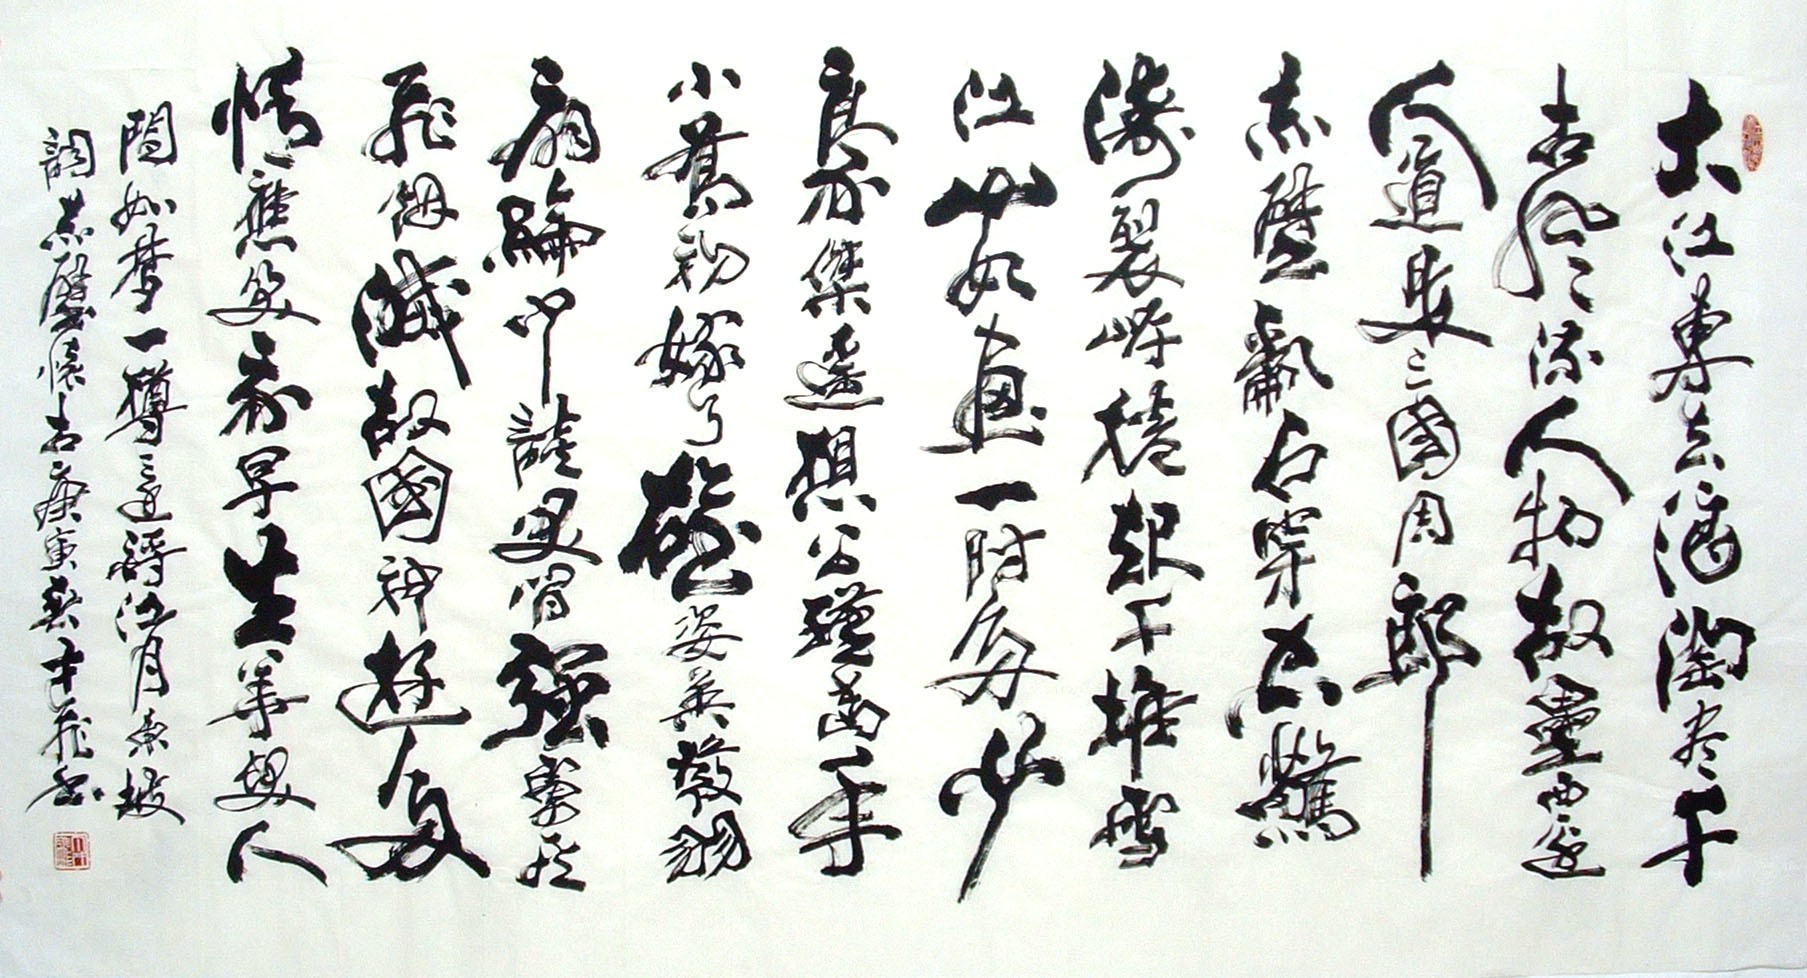 大江東去浪淘盡千
古風流人物故壘西邊
人道是三國周郎
赤壁亂石穿空驚
濤裂岸捲起千堆雪
江山如畫一時多少
豪傑遙想公瑾當年
小喬初嫁了雄姿英發羽
扇綸巾談笑間強虜灰
飛烟滅故國神遊多
情應笑我早生華髮人
間如夢一樽還酹江月東坡
詞赤壁懷古庚寅書